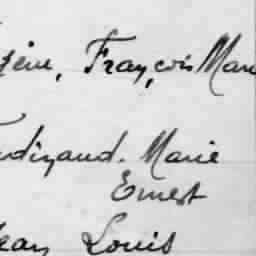 gène, François Mari
rdinand. Marie
Ernest
Jean Louis